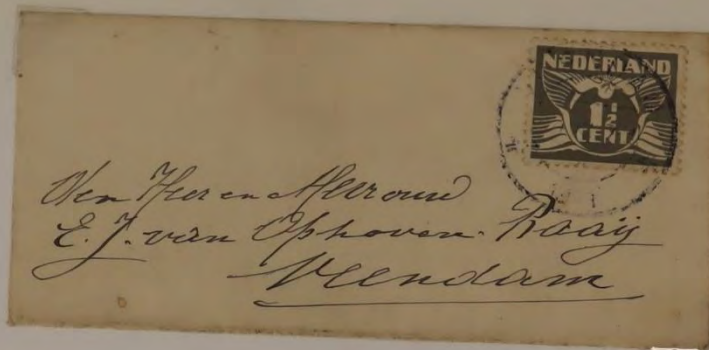 NEDERLAND
1½
CENT
Den Heer en Mevrouw
E. J. van Ophoven-Raaij
Veendam